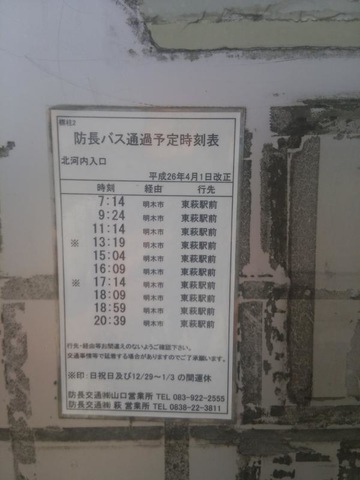 防長バス通過予定時刻表
北河内入口
平成26年4月1日改正
時刻 経由 行先
7:14 明木市 東萩駅前
9:24 明木市 東萩駅前
11:14 明木市 東萩駅前
※ 13:19 明木市 東萩駅前
15:04 明木市 東萩駅前
16:09 明木市 東萩駅前
※ 17:14 明木市 東萩駅前
18:09 明木市 東萩駅前
18:59 明木市 東萩駅前
20:39 明木市 東萩駅前
行先・経由等お間違えのないようご確認下さい。
交通事情等で延着する場合がありますのでご了承願います。
※印:日祝日及び12/29~1/3 の間運休
防長交通㈱山口営業所 TEL 083-922-2555
防長交通㈱ 萩 営業所 TEL 0838-22-3811